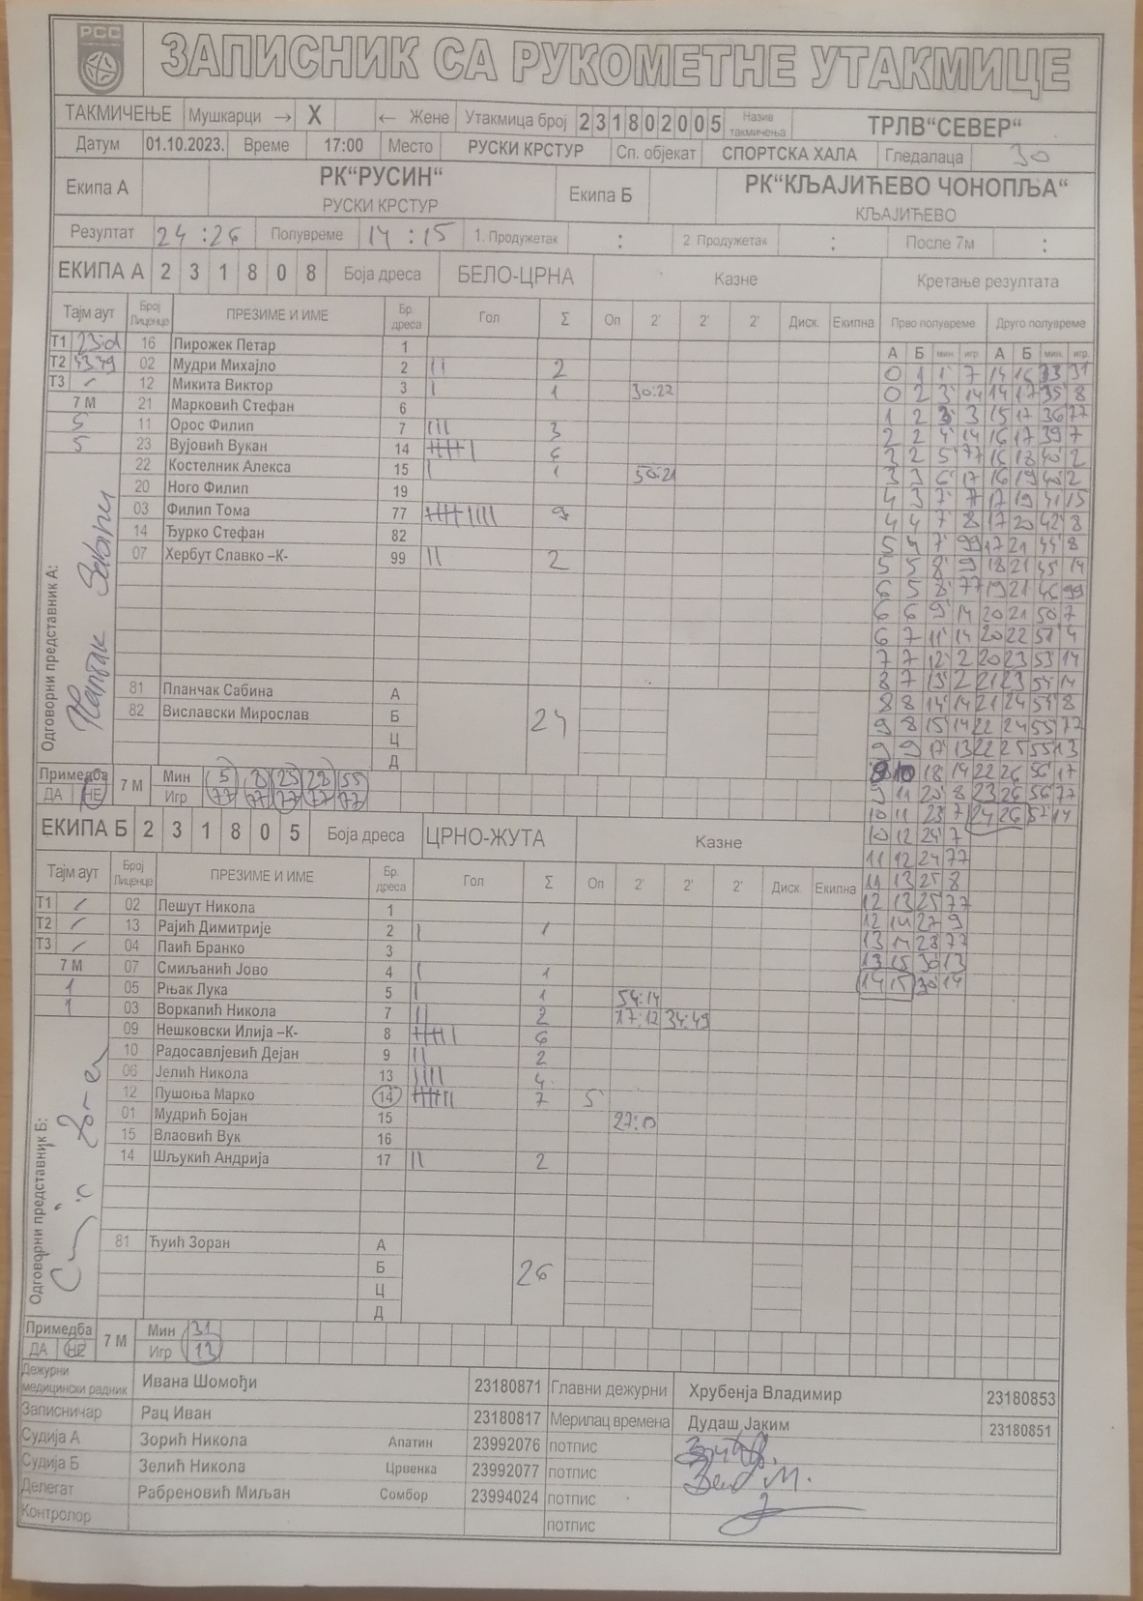 РСС
ЗАПИСНИК СА РУКОМЕТНЕ УТАКМИЦЕ
ТАКМИЧЕЊЕ Мушкарци → X ← Жене Утакмица број 2 3 1 8 0 2 0 0 5 Назив такмичења ТРЛВ“СЕВЕР“
Датум 01.10.2023. Време 17:00 Место РУСКИ КРСТУР Сп. објекат СПОРТСКА ХАЛА Гледалаца 30
Екипа А РК“РУСИН“ Екипа Б РК“КЉАЈИЋЕВО ЧОНОПЉА“
РУСКИ КРСТУР КЉАЈИЋЕВО
Резултат 24 : 26 Полувреме 14 : 15 1. Продужетак : 2 Продужетак : После 7м :
ЕКИПА А 2 3 1 8 0 8 Боја дреса БЕЛО-ЦРНА Казне Кретање резултата
Тајм аут Број Лиценце ПРЕЗИМЕ И ИМЕ Бр. дреса Гол Σ Оп 2' 2' 2' Диск. Екипна Прво полувреме Друго полувреме
А Б мин. игр. А Б мин. игр.
Т1 16 Пирожек Петар 1
Т2 43:49 02 Мудри Михајло 2 || 2
Т3 / 12 Микита Виктор 3 | 1 30:22
7 М 21 Марковић Стефан 6
5 11 Орос Филип 7 ||| 3
5 23 Вујовић Вукан 14 6
22 Костелник Алекса 15 | 1 50:21
20 Ного Филип 19
03 Филип Тома 77 9
14 Ђурко Стефан 82
07 Хербут Славко –К- 99 || 2
Одговорни представник А:
81 Планчак Сабина А
82 Виславски Мирослав Б 24
Ц
Д
0 1 1' 7 14 16 33 31
0 2 3' 14 14 17 35 8
1 2 3' 3 15 17 36 77
2 2 4' 14 16 17 39 7
3 2 5' 77 16 18 40 2
3 3 6' 17 16 19 40 2
4 3 7' 7 17 19 41 15
4 4 7' 8 17 20 42 8
5 4 7' 99 17 21 44 8
5 5 8' 9 18 21 45 14
6 5 8' 77 19 21 46 99
6 6 9' 14 20 21 50 7
6 7 11' 14 20 22 51 4
7 7 12' 2 20 23 53 14
8 7 13' 2 21 23 54 14
8 8 14' 14 21 24 54 8
9 8 15' 14 22 24 55 77
9 9 17' 13 22 25 55 13
9 10 18 14 22 26 56 17
9 11 20' 8 23 26 56 77
10 11 23' 7 24 26 57 14
10 12 24' 7
11 12 24 77
11 13 25 8
12 13 25 77
12 14 27 9
13 14 28 77
13 15 30 13
14 15 30 14
Примедба 7 М Мин 5 8 23 28 55
ДА НЕ Игр 77 77 77 77 77
ЕКИПА Б 2 3 1 8 0 5 Боја дреса ЦРНО-ЖУТА Казне
Тајм аут Број Лиценце ПРЕЗИМЕ И ИМЕ Бр. дреса Гол Σ Оп 2' 2' 2' Диск. Екипна
Т1 / 02 Пешут Никола 1
Т2 / 13 Рајић Димитрије 2 | 1
Т3 / 04 Паић Бранко 3
7 М 07 Смиљанић Јово 4 | 1
1 05 Рњак Лука 5 | 1 54:14
1 03 Воркапић Никола 7 || 2 17:12 34:49
09 Нешковски Илија –К- 8 6
10 Радосавлјевић Дејан 9 || 2
06 Јелић Никола 13 |||| 4
12 Пушоња Марко 14 7 5
01 Мудрић Бојан 15
15 Влаовић Вук 16
14 Шљукић Андрија 17 || 2
Одговорни представник Б:
81 Ћуић Зоран А
Б 26
Ц
Д
Примедба 7 М Мин 31
ДА НЕ Игр 13
Дежурни медицински радник Ивана Шомођи 23180871 Главни дежурни Хрубења Владимир 23180853
Записничар Рац Иван 23180817 Мерилац времена Дудаш Јаким 23180851
Судија А Зорић Никола Апатин 23992076 потпис
Судија Б Зелић Никола Црвенка 23992077 потпис
Делегат Рабреновић Миљан Сомбор 23994024 потпис
Контролор потпис